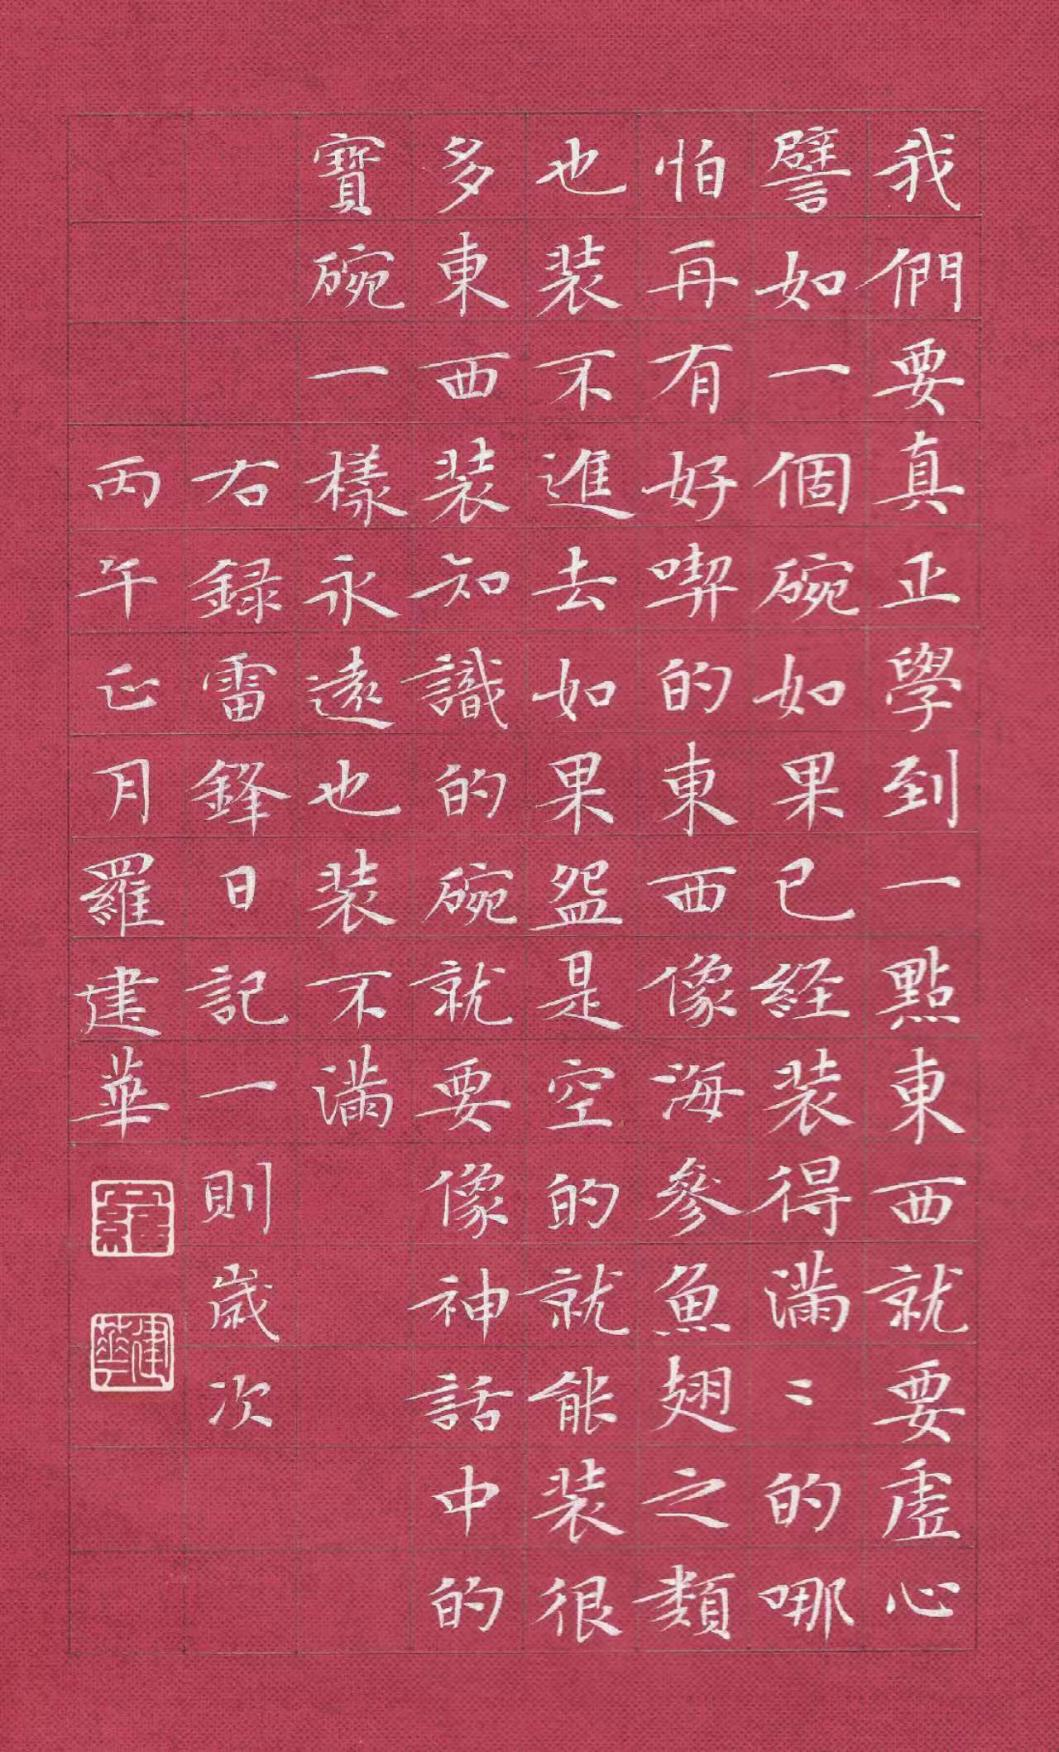 我們要真正學到一點東西就要虛心
譬如一個碗如果已経装得滿〻的哪
怕再有好喫的東西像海參魚翅之類
也装不進去如果盌是空的就能装很
多東西装知識的碗就要像神話中的
寳碗一樣永遠也装不滿
右録雷鋒日記一則歲次
丙午正月羅建華
羅
建華